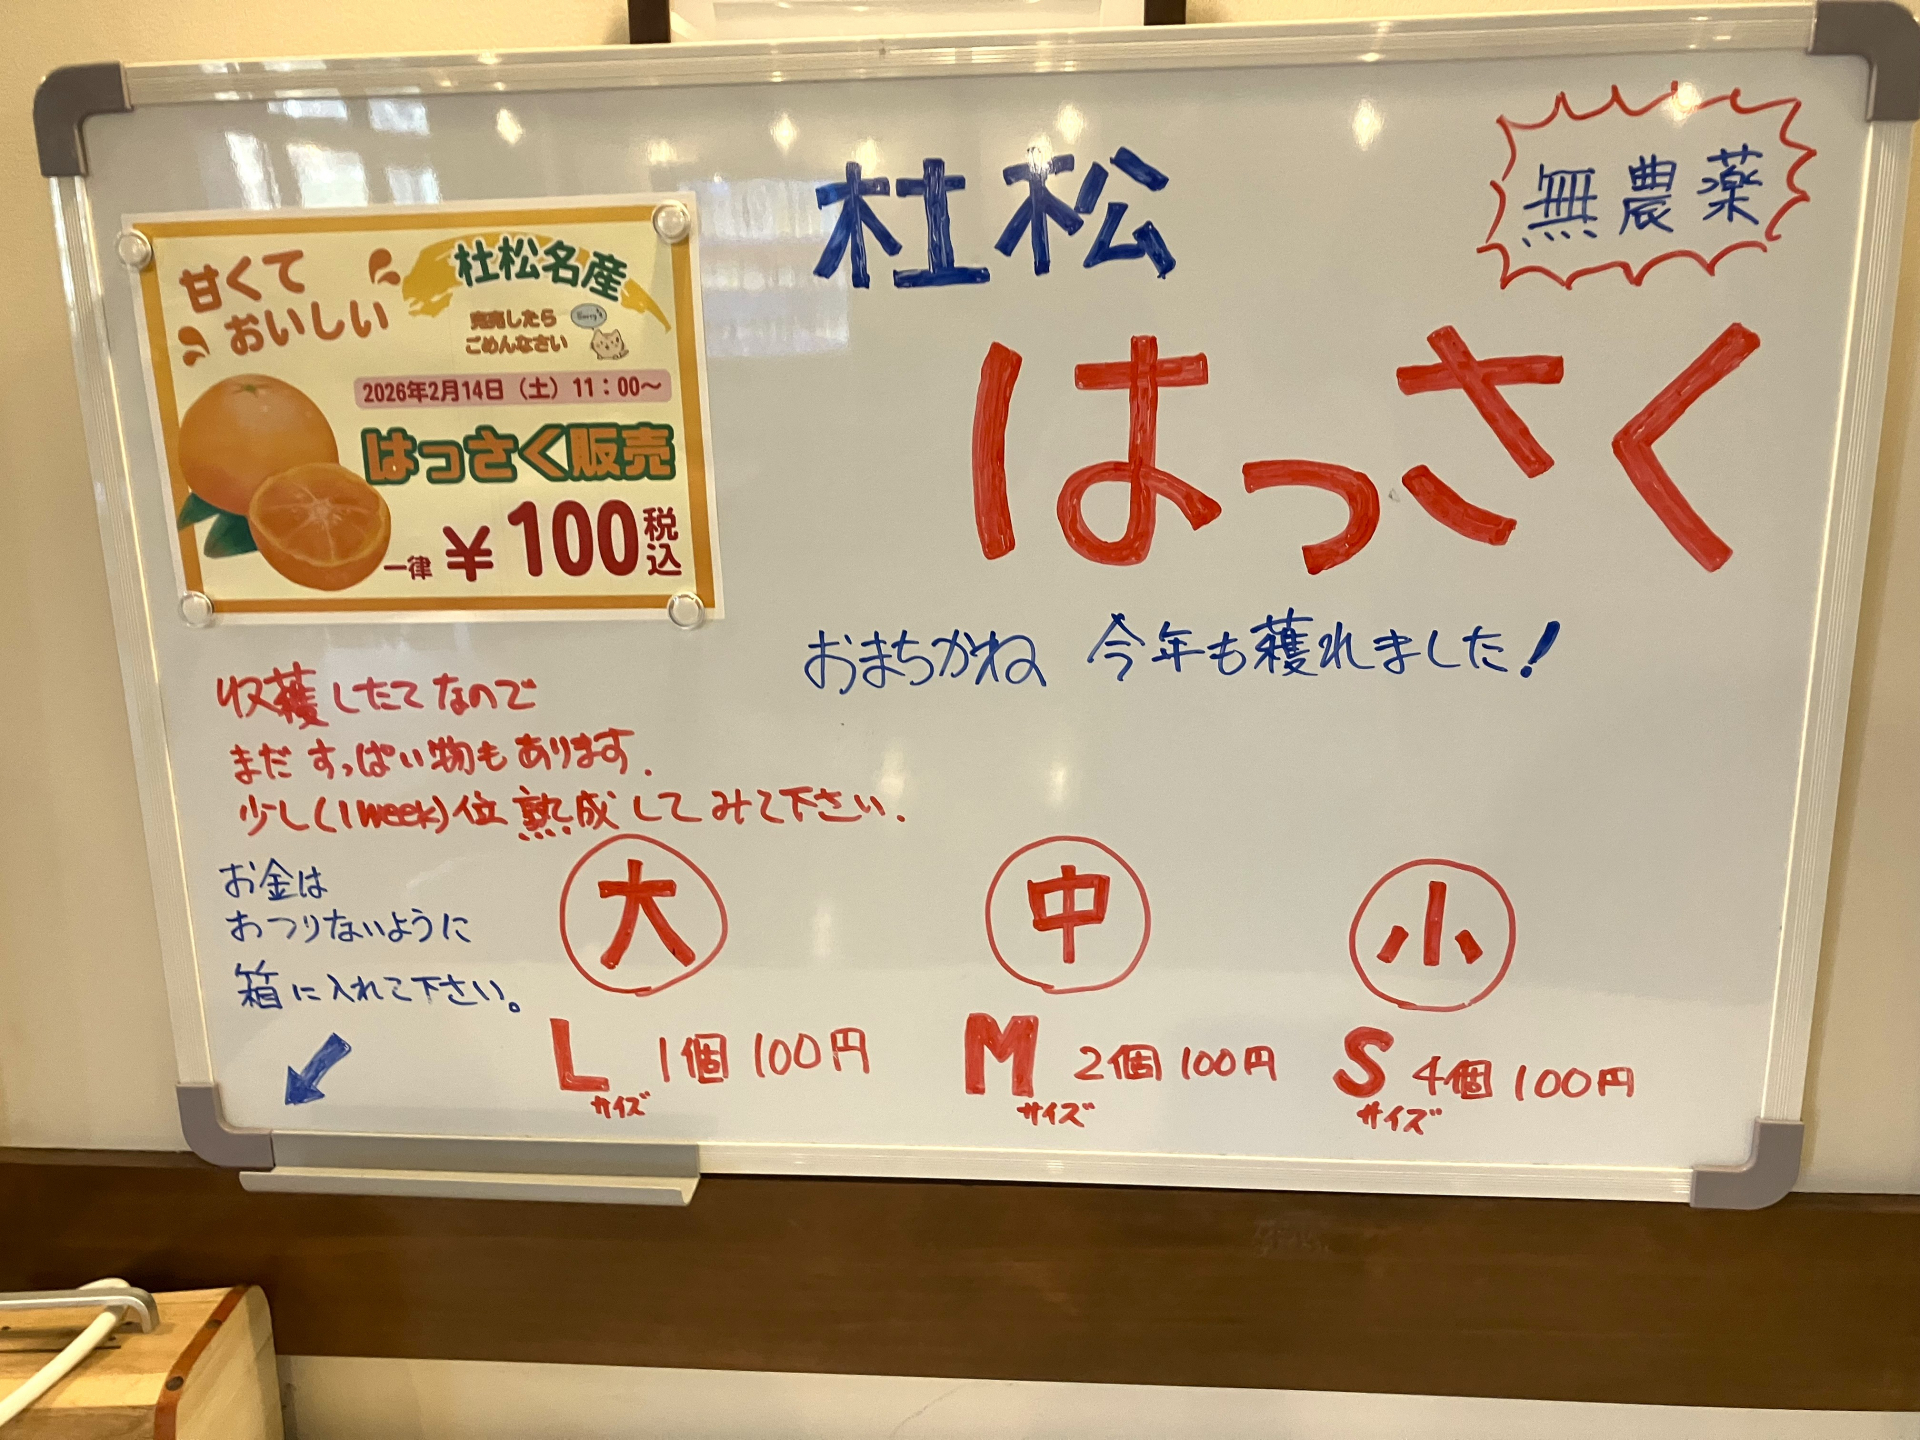 甘くて
おいしい
杜松名産
完売したら
ごめんなさい
Sorry
2026年2月14日(土)11:00〜
はっさく販売
一律 ¥100 税込
無農薬
杜松
はっさく
おまちかね 今年も獲れました!
収獲したてなので
まだすっぱい物もあります.
少し(1week)位熟成してみて下さい.
お金は
おつりないように
箱に入れて下さい。
大
L サイズ 1個 100円
中
M サイズ 2個 100円
小
S サイズ 4個 100円